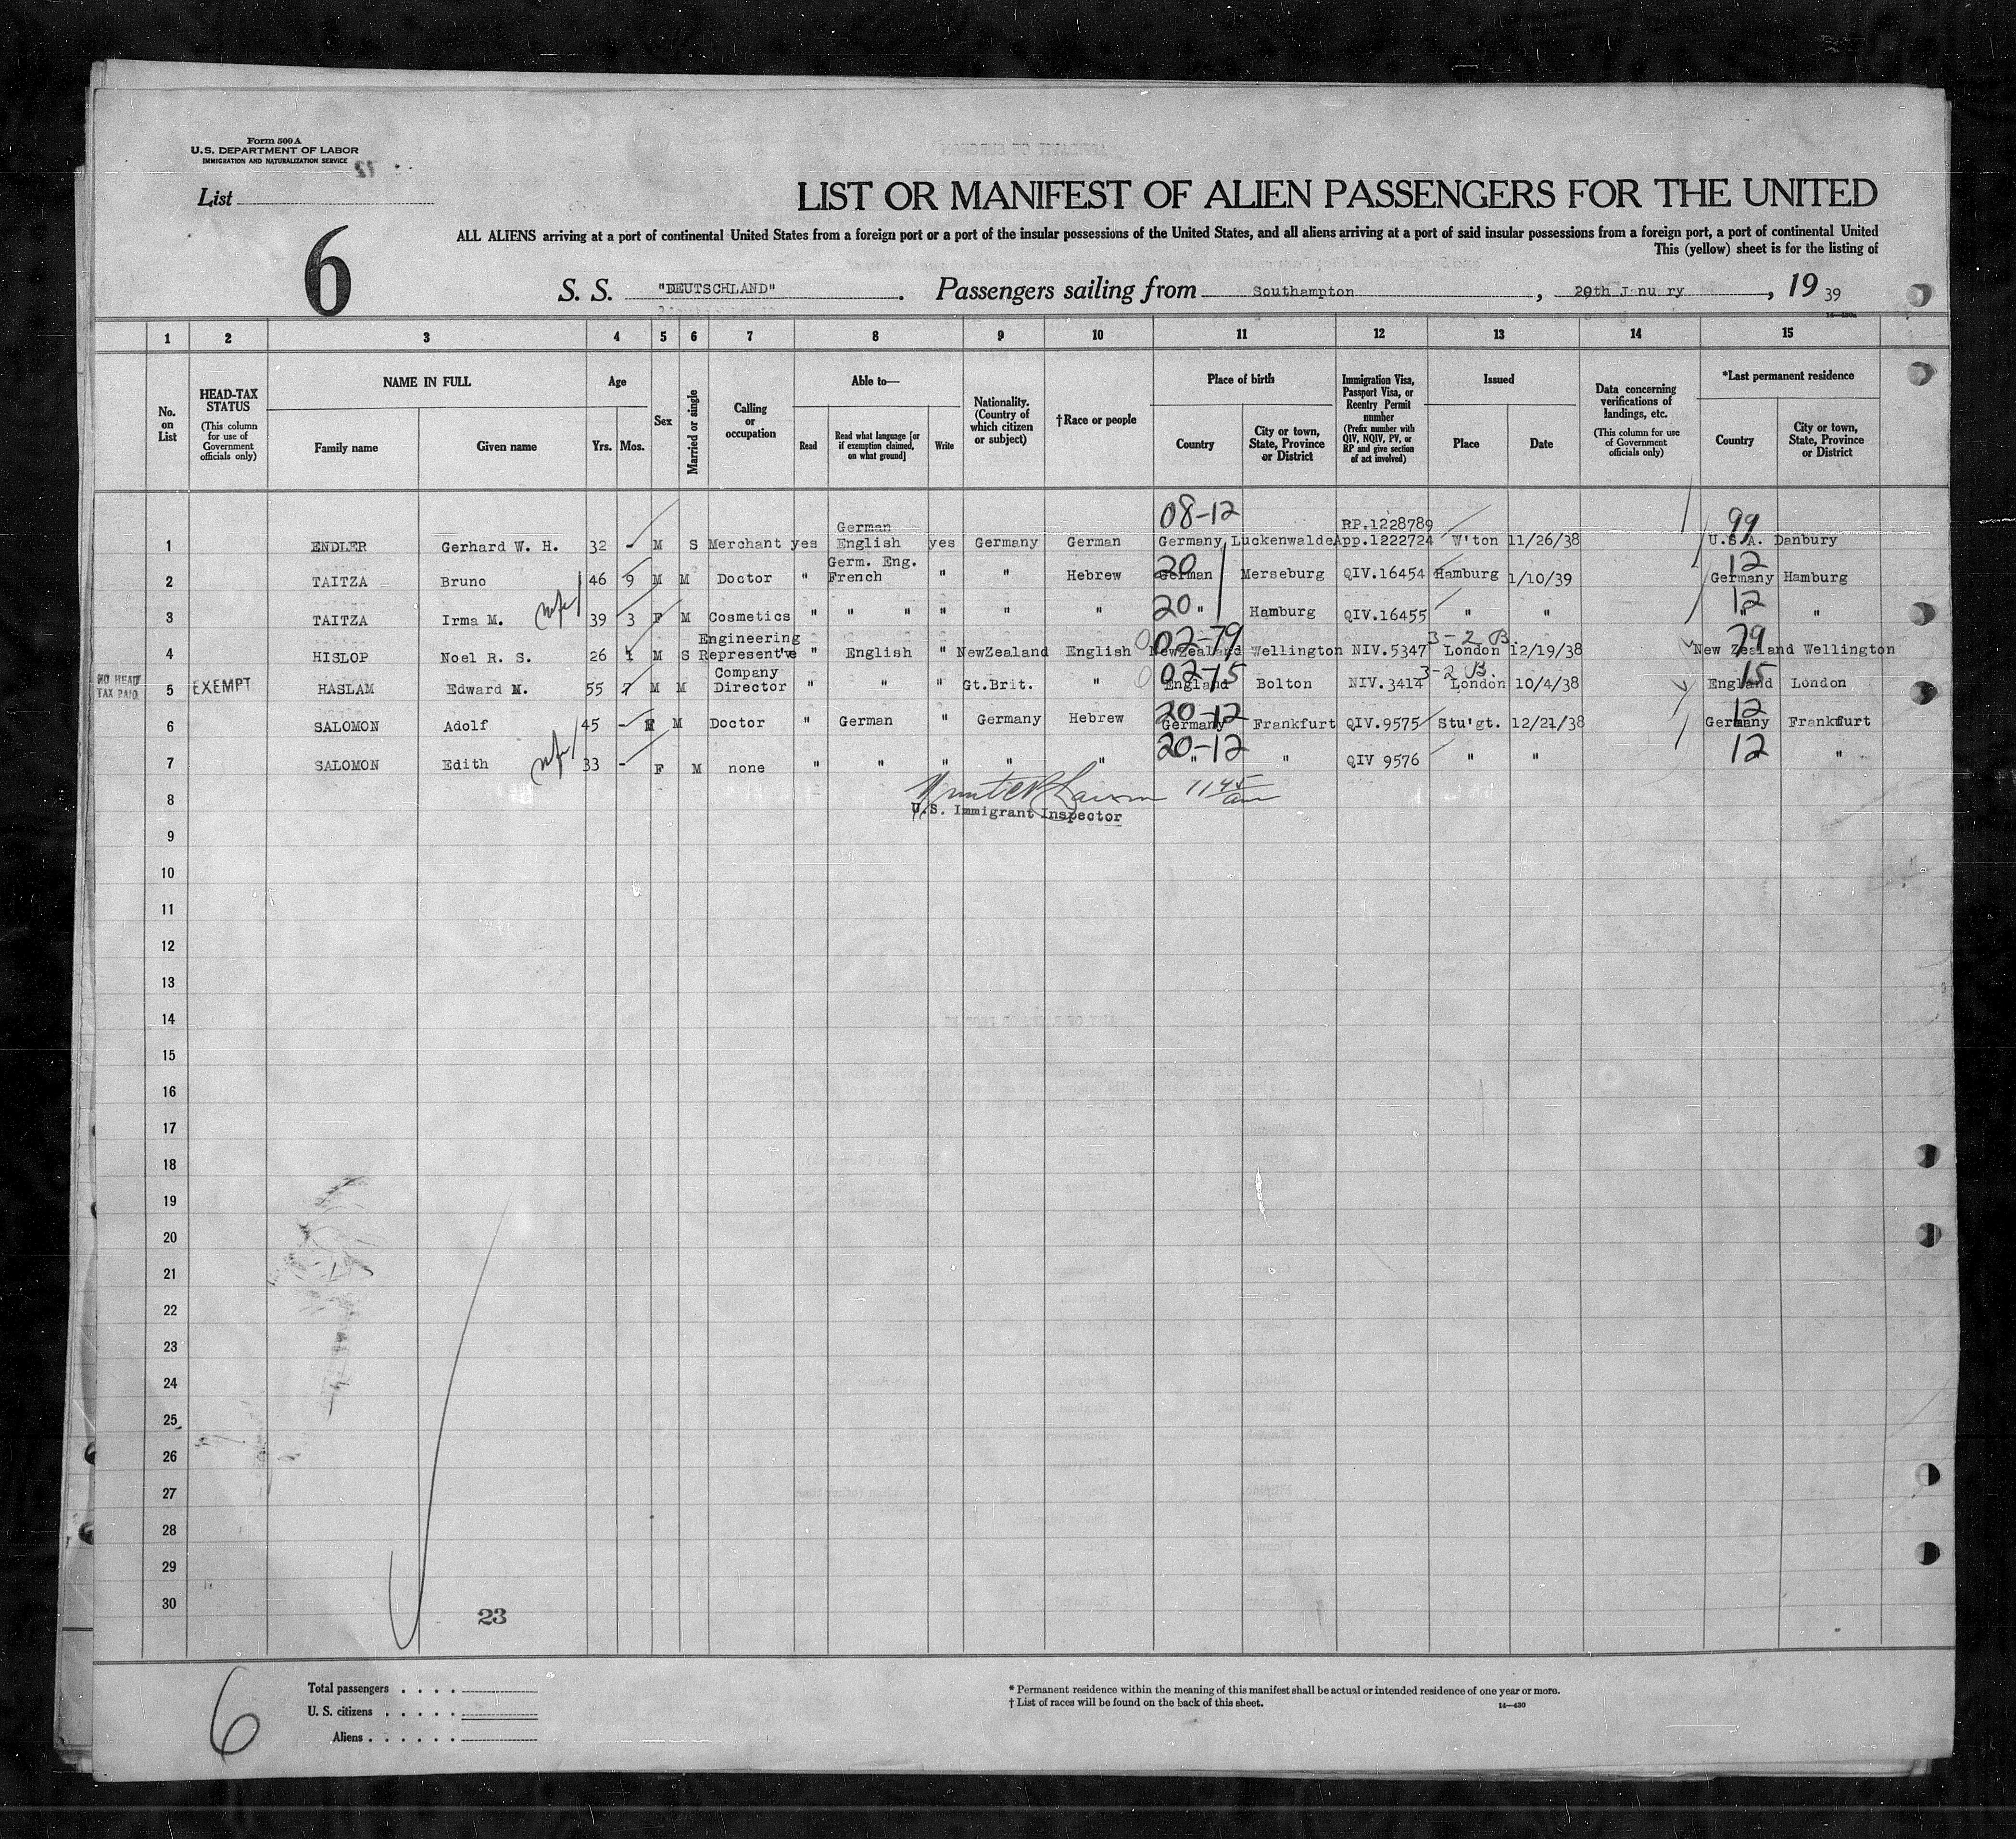 Form 500 A
U.S. DEPARTMENT OF LABOR
IMMIGRATION AND NATURALIZATION SERVICE
List
6
LIST OR MANIFEST OF ALIEN PASSENGERS FOR THE UNITED
ALL ALIENS arriving at a port of continental United States from a foreign port or a port of the insular possessions of the United States, and all aliens arriving at a port of said insular possessions from a foreign port, a port of continental United
This (yellow) sheet is for the listing of
S. S. "DEUTSCHLAND". Passengers sailing from Southampton, 20th January, 19 39
1 2 3 4 5 6 7 8 9 10 11 12 13 14 15
No. on List
HEAD-TAX STATUS (This column for use of Government officials only)
NAME IN FULL
Family name Given name
Age
Yrs. Mos.
Sex
Married or single
Calling or occupation
Able to—
Read Read what language [or if exemption claimed, on what ground] Write
Nationality. (Country of which citizen or subject)
†Race or people
Place of birth
Country City or town, State, Province or District
Immigration Visa, Passport Visa, or Reentry Permit number (Prefix number with QIV, NQIV, PV, or RP and give section of act involved)
Issued
Place Date
Data concerning verifications of landings, etc. (This column for use of Government officials only)
*Last permanent residence
Country City or town, State, Province or District
08-12 99
German RP.1228789
1 ENDLER Gerhard W. H. 32 - M S Merchant yes English yes Germany German Germany Luckenwalde App.1222724 W'ton 11/26/38 U.S.A. Danbury
Germ. Eng. 20 12
2 TAITZA Bruno 46 9 M M Doctor " French " " Hebrew German Merseburg QIV.16454 Hamburg 1/10/39 Germany Hamburg
20 12
3 TAITZA Irma M. wife 39 3 F M Cosmetics " " " " " " " Hamburg QIV.16455 " " " "
Engineering 02-79 3-2 B. 79
4 HISLOP Noel R. S. 26 M S Represent've " English " NewZealand English NewZealand Wellington NIV.5347 London 12/19/38 New Zealand Wellington
NO HEAD TAX PAID
Company 02-15 3-2 B. 15
5 EXEMPT HASLAM Edward M. 55 7 M M Director " " " Gt.Brit. " England Bolton NIV.3414 London 10/4/38 England London
20-12 12
6 SALOMON Adolf 45 - M M Doctor " German " Germany Hebrew Germany Frankfurt QIV.9575 Stu'gt. 12/21/38 Germany Frankfurt
20-12 12
7 SALOMON Edith wife 33 - F M none " " " " " " " QIV 9576 " " "
8 11 45 am
U.S. Immigrant Inspector
9
10
11
12
13
14
15
16
17
18
19
20
21
22
23
24
25
26
27
28
29
30
23
6
Total passengers . . . .
U. S. citizens . . . . .
Aliens . . . . . .
* Permanent residence within the meaning of this manifest shall be actual or intended residence of one year or more.
† List of races will be found on the back of this sheet. 14—430